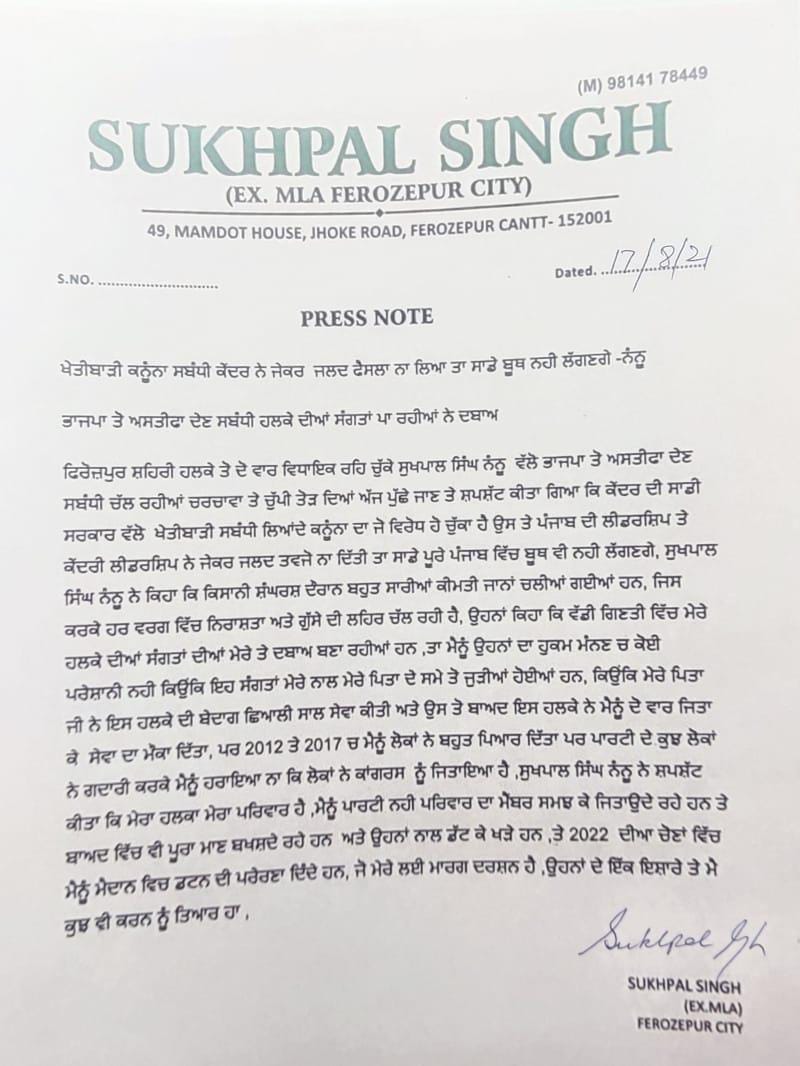 (M) 98141 78449
SUKHPAL SINGH
(EX. MLA FEROZEPUR CITY)
49, MAMDOT HOUSE, JHOKE ROAD, FEROZEPUR CANTT- 152001
S.NO. ............................
Dated. .........................
17/8/21
PRESS NOTE
ਖੇਤੀਬਾੜੀ ਕਨੂੰਨਾ ਸਬੰਧੀ ਕੇਂਦਰ ਨੇ ਜੇਕਰ ਜਲਦ ਫੈਸਲਾ ਨਾ ਲਿਆ ਤਾ ਸਾਡੇ ਬੂਥ ਨਹੀ ਲੱਗਣਗੇ -ਨੰਨੂ
ਭਾਜਪਾ ਤੋ ਅਸਤੀਫਾ ਦੇਣ ਸਬੰਧੀ ਹਲਕੇ ਦੀਆਂ ਸੰਗਤਾਂ ਪਾ ਰਹੀਆਂ ਨੇ ਦਬਾਅ
ਫਿਰੋਜ਼ਪੁਰ ਸ਼ਹਿਰੀ ਹਲਕੇ ਤੋ ਦੋ ਵਾਰ ਵਿਧਾਇਕ ਰਹਿ ਚੁੱਕੇ ਸੁਖਪਾਲ ਸਿੰਘ ਨੰਨੂ ਵੱਲੋ ਭਾਜਪਾ ਤੋ ਅਸਤੀਫਾ ਦੇਣ
ਸਬੰਧੀ ਚੱਲ ਰਹੀਆਂ ਚਰਚਾਵਾ ਤੇ ਚੁੱਪੀ ਤੋੜ ਦਿਆਂ ਅੱਜ ਪੁੱਛੇ ਜਾਣ ਤੇ ਸ਼ਪਸ਼ੱਟ ਕੀਤਾ ਗਿਆ ਕਿ ਕੇਂਦਰ ਦੀ ਸਾਡੀ
ਸਰਕਾਰ ਵੱਲੋ ਖੇਤੀਬਾੜੀ ਸਬੰਧੀ ਲਿਆਂਦੇ ਕਨੂੰਨਾ ਦਾ ਜੋ ਵਿਰੋਧ ਹੋ ਚੁੱਕਾ ਹੈ ਉਸ ਤੇ ਪੰਜਾਬ ਦੀ ਲੀਡਰਸ਼ਿਪ ਤੇ
ਕੇਂਦਰੀ ਲੀਡਰਸ਼ਿਪ ਨੇ ਜੇਕਰ ਜਲਦ ਤਵਜੋ ਨਾ ਦਿੱਤੀ ਤਾ ਸਾਡੇ ਪੂਰੇ ਪੰਜਾਬ ਵਿੱਚ ਬੂਥ ਵੀ ਨਹੀ ਲੱਗਣਗੇ, ਸੁਖਪਾਲ
ਸਿੰਘ ਨੰਨੂ ਨੇ ਕਿਹਾ ਕਿ ਕਿਸਾਨੀ ਸ਼ੰਘਰਸ਼ ਦੌਰਾਨ ਬਹੁਤ ਸਾਰੀਆਂ ਕੀਮਤੀ ਜਾਨਾਂ ਚਲੀਆਂ ਗਈਆਂ ਹਨ, ਜਿਸ
ਕਰਕੇ ਹਰ ਵਰਗ ਵਿੱਚ ਨਿਰਾਸ਼ਤਾ ਅਤੇ ਗੁੱਸੇ ਦੀ ਲਹਿਰ ਚੱਲ ਰਹੀ ਹੈ, ਉਹਨਾਂ ਕਿਹਾ ਕਿ ਵੱਡੀ ਗਿਣਤੀ ਵਿੱਚ ਮੇਰੇ
ਹਲਕੇ ਦੀਆਂ ਸੰਗਤਾਂ ਦੀਆਂ ਮੇਰੇ ਤੇ ਦਬਾਅ ਬਣਾ ਰਹੀਆਂ ਹਨ ,ਤਾ ਮੈਨੂੰ ਉਹਨਾਂ ਦਾ ਹੁਕਮ ਮੰਨਣ ਚ ਕੋਈ
ਪਰੇਸ਼ਾਨੀ ਨਹੀ ਕਿਉਂਕਿ ਇਹ ਸੰਗਤਾਂ ਮੇਰੇ ਨਾਲ ਮੇਰੇ ਪਿਤਾ ਦੇ ਸਮੇ ਤੋ ਜੁੜੀਆਂ ਹੋਈਆਂ ਹਨ, ਕਿਉਂਕਿ ਮੇਰੇ ਪਿਤਾ
ਜੀ ਨੇ ਇਸ ਹਲਕੇ ਦੀ ਬੇਦਾਗ ਛਿਆਲੀ ਸਾਲ ਸੇਵਾ ਕੀਤੀ ਅਤੇ ਉਸ ਤੋ ਬਾਅਦ ਇਸ ਹਲਕੇ ਨੇ ਮੈਨੂੰ ਦੋ ਵਾਰ ਜਿਤਾ
ਕੇ ਸੇਵਾ ਦਾ ਮੌਕਾ ਦਿੱਤਾ, ਪਰ 2012 ਤੇ 2017 ਚ ਮੈਨੂੰ ਲੋਕਾਂ ਨੇ ਬਹੁਤ ਪਿਆਰ ਦਿੱਤਾ ਪਰ ਪਾਰਟੀ ਦੇ ਕੁਝ ਲੋਕਾਂ
ਨੇ ਗਦਾਰੀ ਕਰਕੇ ਮੈਨੂੰ ਹਰਾਇਆ ਨਾ ਕਿ ਲੋਕਾਂ ਨੇ ਕਾਂਗਰਸ ਨੂੰ ਜਿਤਾਇਆ ਹੈ ,ਸੁਖਪਾਲ ਸਿੰਘ ਨੰਨੂ ਨੇ ਸ਼ਪਸ਼ੱਟ
ਕੀਤਾ ਕਿ ਮੇਰਾ ਹਲਕਾ ਮੇਰਾ ਪਰਿਵਾਰ ਹੈ ,ਮੈਨੂੰ ਪਾਰਟੀ ਨਹੀ ਪਰਿਵਾਰ ਦਾ ਮੈਂਬਰ ਸਮਝ ਕੇ ਜਿਤਾਉਦੇ ਰਹੇ ਹਨ ਤੇ
ਬਾਅਦ ਵਿੱਚ ਵੀ ਪੂਰਾ ਮਾਣ ਬਖਸ਼ਦੇ ਰਹੇ ਹਨ ਅਤੇ ਉਹਨਾਂ ਨਾਲ ਡੱਟ ਕੇ ਖੜੇ ਹਨ ,ਤੇ 2022 ਦੀਆ ਚੋਣਾਂ ਵਿੱਚ
ਮੈਨੂੰ ਮੈਦਾਨ ਵਿਚ ਡਟਨ ਦੀ ਪਰੇਰਣਾ ਦਿੰਦੇ ਹਨ, ਜੋ ਮੇਰੇ ਲਈ ਮਾਰਗ ਦਰਸ਼ਨ ਹੈ ,ਉਹਨਾਂ ਦੇ ਇੱਕ ਇਸ਼ਾਰੇ ਤੇ ਮੈ
ਕੁਝ ਵੀ ਕਰਨ ਨੂੰ ਤਿਆਰ ਹਾ ,
Sukhpal Singh
SUKHPAL SINGH
(EX.MLA)
FEROZEPUR CITY